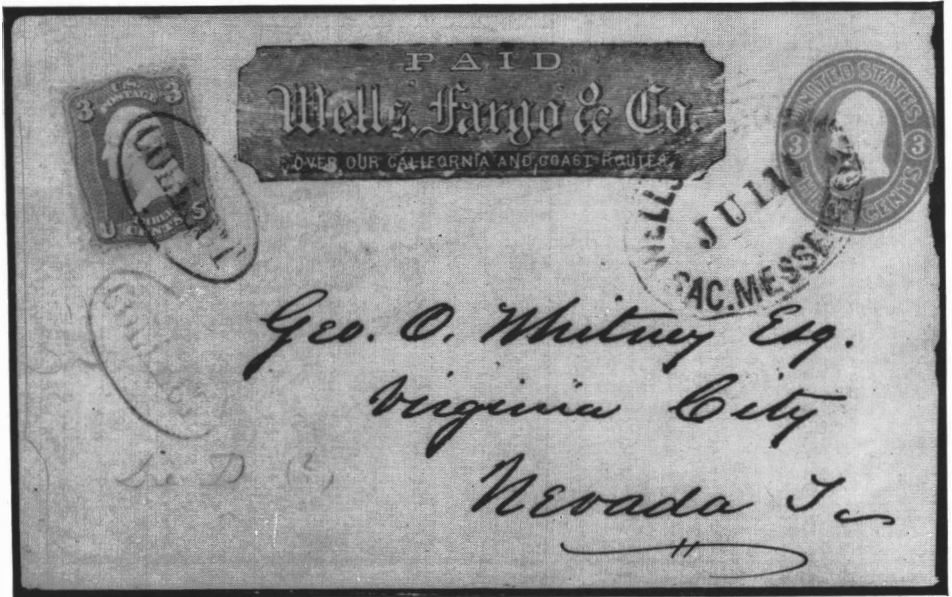 PAID
Wells, Fargo & Co.
OVER OUR CALIFORNIA AND COAST ROUTES.
3 3
U.S. POSTAGE
U S
THREE CENTS
COLLECT
UNITED STATES
3 3
CENTS
WELLS
JUL 1
SAC. MESSE
COLLECT
Geo. O. Whitney Esq.
Virginia City
Nevada T